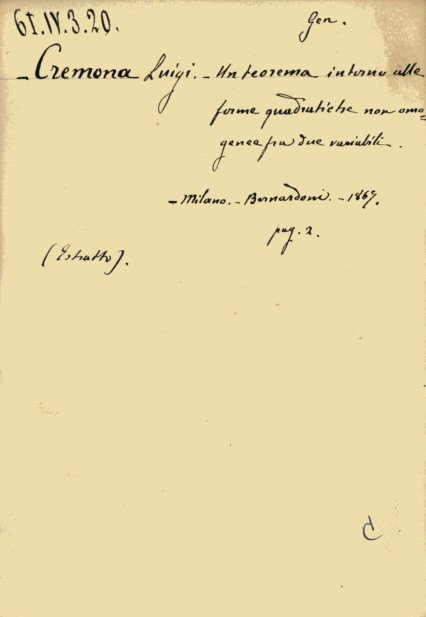 61.IV.3.20.
Gen.
- Cremona Luigi. - Un teorema intorno alle
forme quadratiche non omo-
genee fra due variabili.
- Milano. - Bernardoni. - 1867.
pag. 2.
(Estratto).
C